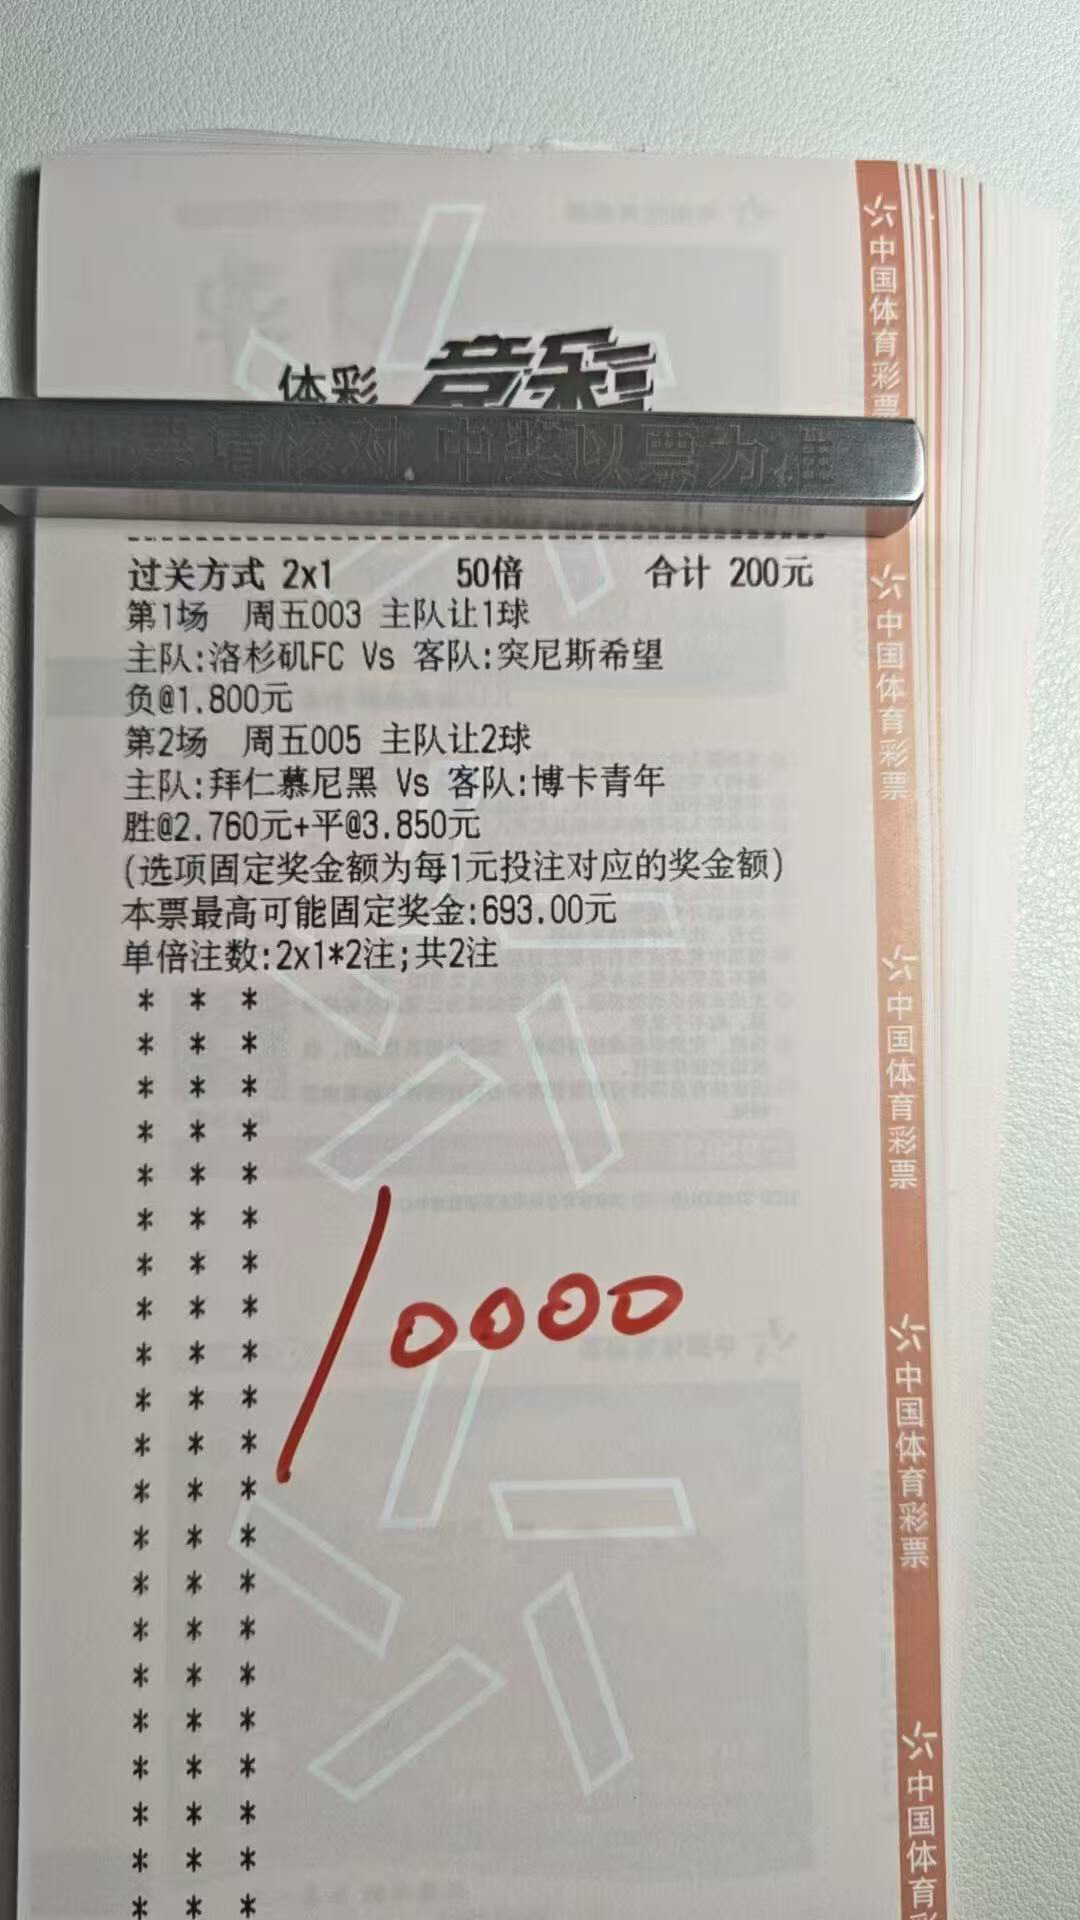 体彩 竞彩
请核对 中奖以票为准
过关方式 2x1 50倍 合计 200元
第1场 周五003 主队让1球
主队:洛杉矶FC Vs 客队:突尼斯希望
负@1.800元
第2场 周五005 主队让2球
主队:拜仁慕尼黑 Vs 客队:博卡青年
胜@2.760元+平@3.850元
(选项固定奖金额为每1元投注对应的奖金额)
本票最高可能固定奖金:693.00元
单倍注数:2x1*2注;共2注
* * *
* * *
* * *
* * *
* * *
* * *
* * *
* * *
* * *
* * *
* * *
* * *
* * *
* * *
* * *
* * *
* * *
* * *
* * *
* * *
* * *
* * *
10000
中国体育彩票
中国体育彩票
中国体育彩票
中国体育彩票
中国体育彩